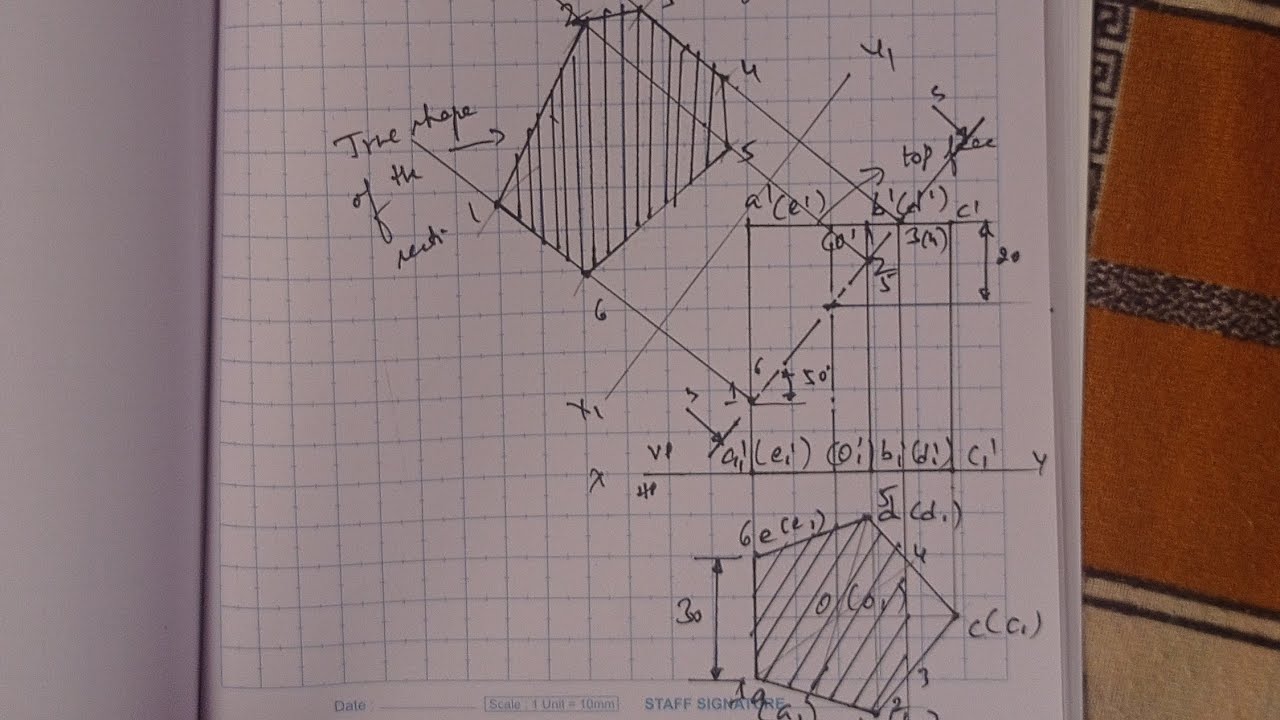 2
3
4
5
True shape
of the
1
6
X1
Y1
s
top face
a'(e')
b'(d')
c'
(o'
3(4)
20
2
5
6
50°
1
s
VP
HP
X
Y
a1'(e1')
(o1'
b1'
(d1'
c1'
6e(e1)
5
d(d1)
4
30
o(o1
c(c1)
3
1a(a1)
2
Date :
Scale : 1 Unit = 10mm
STAFF SIGNATURE